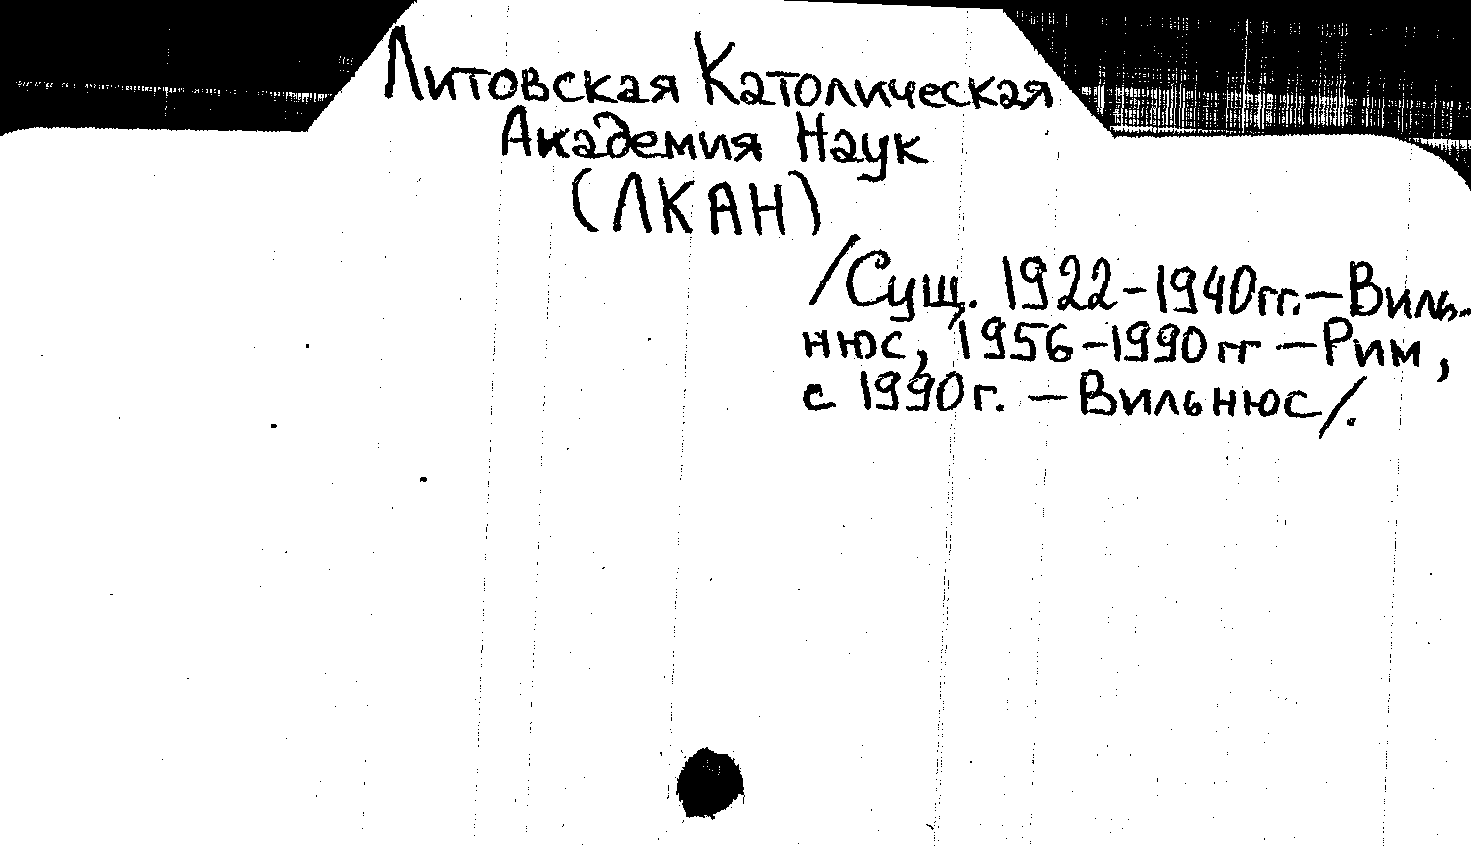 Литовская Католическая
Академия Наук
(ЛКАН)
/Сущ. 1922-1940гг. – Виль-
нюс, 1956-1990гг – Рим,
с 1990г. – Вильнюс/.